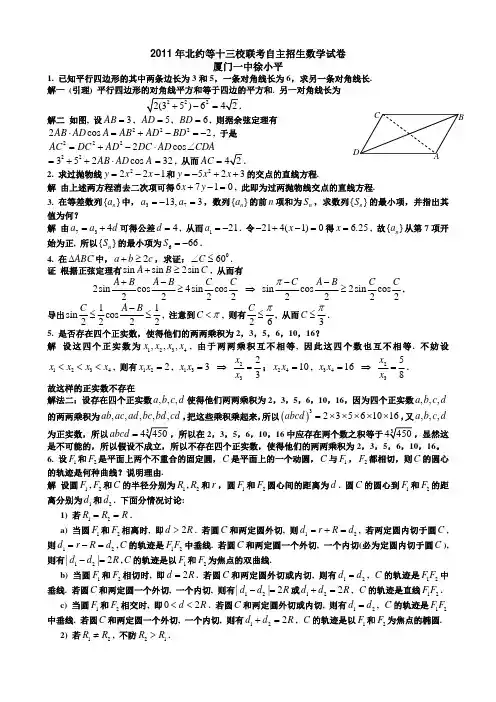 2011年北约等十三校联考自主招生数学试卷
厦门一中徐小平
1. 已知平行四边形的其中两条边长为 3 和 5，一条对角线长为 6，求另一条对角线长.
解一 (引理) 平行四边形的对角线平方和等于四边的平方和. 另一对角线长为
√(2(3²+5²)−6²) = 4√2.
解二 如图, 设 AB = 3，AD = 5，BD = 6，则据余弦定理有
2AB·AD cos A = AB² + AD² − BD² = −2, 于是
AC² = DC² + AD² − 2DC·AD cos∠CDA
= 3² + 5² + 2AB·AD cos A = 32, 从而 AC = 4√2.
C
B
D
A
2. 求过抛物线 y = 2x² − 2x − 1 和 y = −5x² + 2x + 3 的交点的直线方程.
解 由上述两方程消去二次项可得 6x + 7y − 1 = 0, 此即为过两抛物线交点的直线方程.
3. 在等差数列{aₙ}中，a₃ = −13, a₇ = 3，数列{aₙ}的前 n 项和为 Sₙ，求数列{Sₙ}的最小项，并指出其
值为何?
解 由 a₇ = a₃ + 4d 可得公差 d = 4, 从而 a₁ = −21. 令 −21 + 4(x−1) = 0 得 x = 6.25, 故{aₙ}从第 7 项开
始为正. 所以{Sₙ}的最小项为 S₆ = −66.
4. 在 ΔABC 中，a + b ≥ 2c，求证：∠C ≤ 60⁰.
证 根据正弦定理有 sin A + sin B ≥ 2sin C, 从而有
2sin (A+B)/2 cos (A−B)/2 ≥ 4sin C/2 cos C/2 ⇒ sin (π−C)/2 cos (A−B)/2 ≥ 2sin C/2 cos C/2,
导出 sin C/2 ≤ 1/2 cos (A−B)/2 ≤ 1/2, 注意到 C < π, 则有 C/2 ≤ π/6, 从而 C ≤ π/3.
5. 是否存在四个正实数，使得他们的两两乘积为 2，3，5，6，10，16？
解 设这四个正实数为 x₁, x₂, x₃, x₄, 由于两两乘积互不相等, 因此这四个数也互不相等. 不妨设
x₁ < x₂ < x₃ < x₄, 则有 x₁x₂ = 2, x₁x₃ = 3 ⇒ x₂/x₃ = 2/3; x₂x₄ = 10, x₃x₄ = 16 ⇒ x₂/x₃ = 5/8.
故这样的正实数不存在
解法二：设存在四个正实数 a,b,c,d 使得他们两两乘积为 2，3，5，6，10，16，因为四个正实数 a,b,c,d
的两两乘积为 ab, ac, ad, bc, bd, cd, 把这些乘积乘起来, 所以 (abcd)³ = 2×3×5×6×10×16, 又 a,b,c,d
为正实数，所以 abcd = 4∛450，所以在 2，3，5，6，10，16 中应存在两个数之积等于 4∛450，显然这
是不可能的，所以假设不成立，所以不存在四个正实数，使得他们的两两乘积为 2，3，5，6，10，16。
6. 设 F₁ 和 F₂ 是平面上两个不重合的固定圆，C 是平面上的一个动圆，C 与 F₁，F₂ 都相切，则 C 的圆心
的轨迹是何种曲线？说明理由.
解 设圆 F₁, F₂ 和 C 的半径分别为 R₁, R₂ 和 r，圆 F₁ 和 F₂ 圆心间的距离为 d. 圆 C 的圆心到 F₁ 和 F₂ 的距
离分别为 d₁ 和 d₂. 下面分情况讨论:
1) 若 R₁ = R₂ = R.
a) 当圆 F₁ 和 F₂ 相离时, 即 d > 2R. 若圆 C 和两定圆外切, 则 d₁ = r + R = d₂, 若两定圆内切于圆 C,
则 d₁ = r − R = d₂, C 的轨迹是 F₁F₂ 中垂线. 若圆 C 和两定圆一个外切, 一个内切(必为定圆内切于圆 C),
则有 |d₁ − d₂| = 2R, C 的轨迹是以 F₁ 和 F₂ 为焦点的双曲线.
b) 当圆 F₁ 和 F₂ 相切时, 即 d = 2R. 若圆 C 和两定圆外切或内切, 则有 d₁ = d₂, C 的轨迹是 F₁F₂ 中
垂线. 若圆 C 和两定圆一个外切, 一个内切, 则有 |d₁ − d₂| = 2R 或 d₁ + d₂ = 2R, C 的轨迹是直线 F₁F₂.
c) 当圆 F₁ 和 F₂ 相交时, 即 0 < d < 2R. 若圆 C 和两定圆外切或内切, 则有 d₁ = d₂, C 的轨迹是 F₁F₂
中垂线. 若圆 C 和两定圆一个外切, 一个内切, 则有 d₁ + d₂ = 2R, C 的轨迹是以 F₁ 和 F₂ 为焦点的椭圆.
2) 若 R₁ ≠ R₂, 不妨 R₂ > R₁.